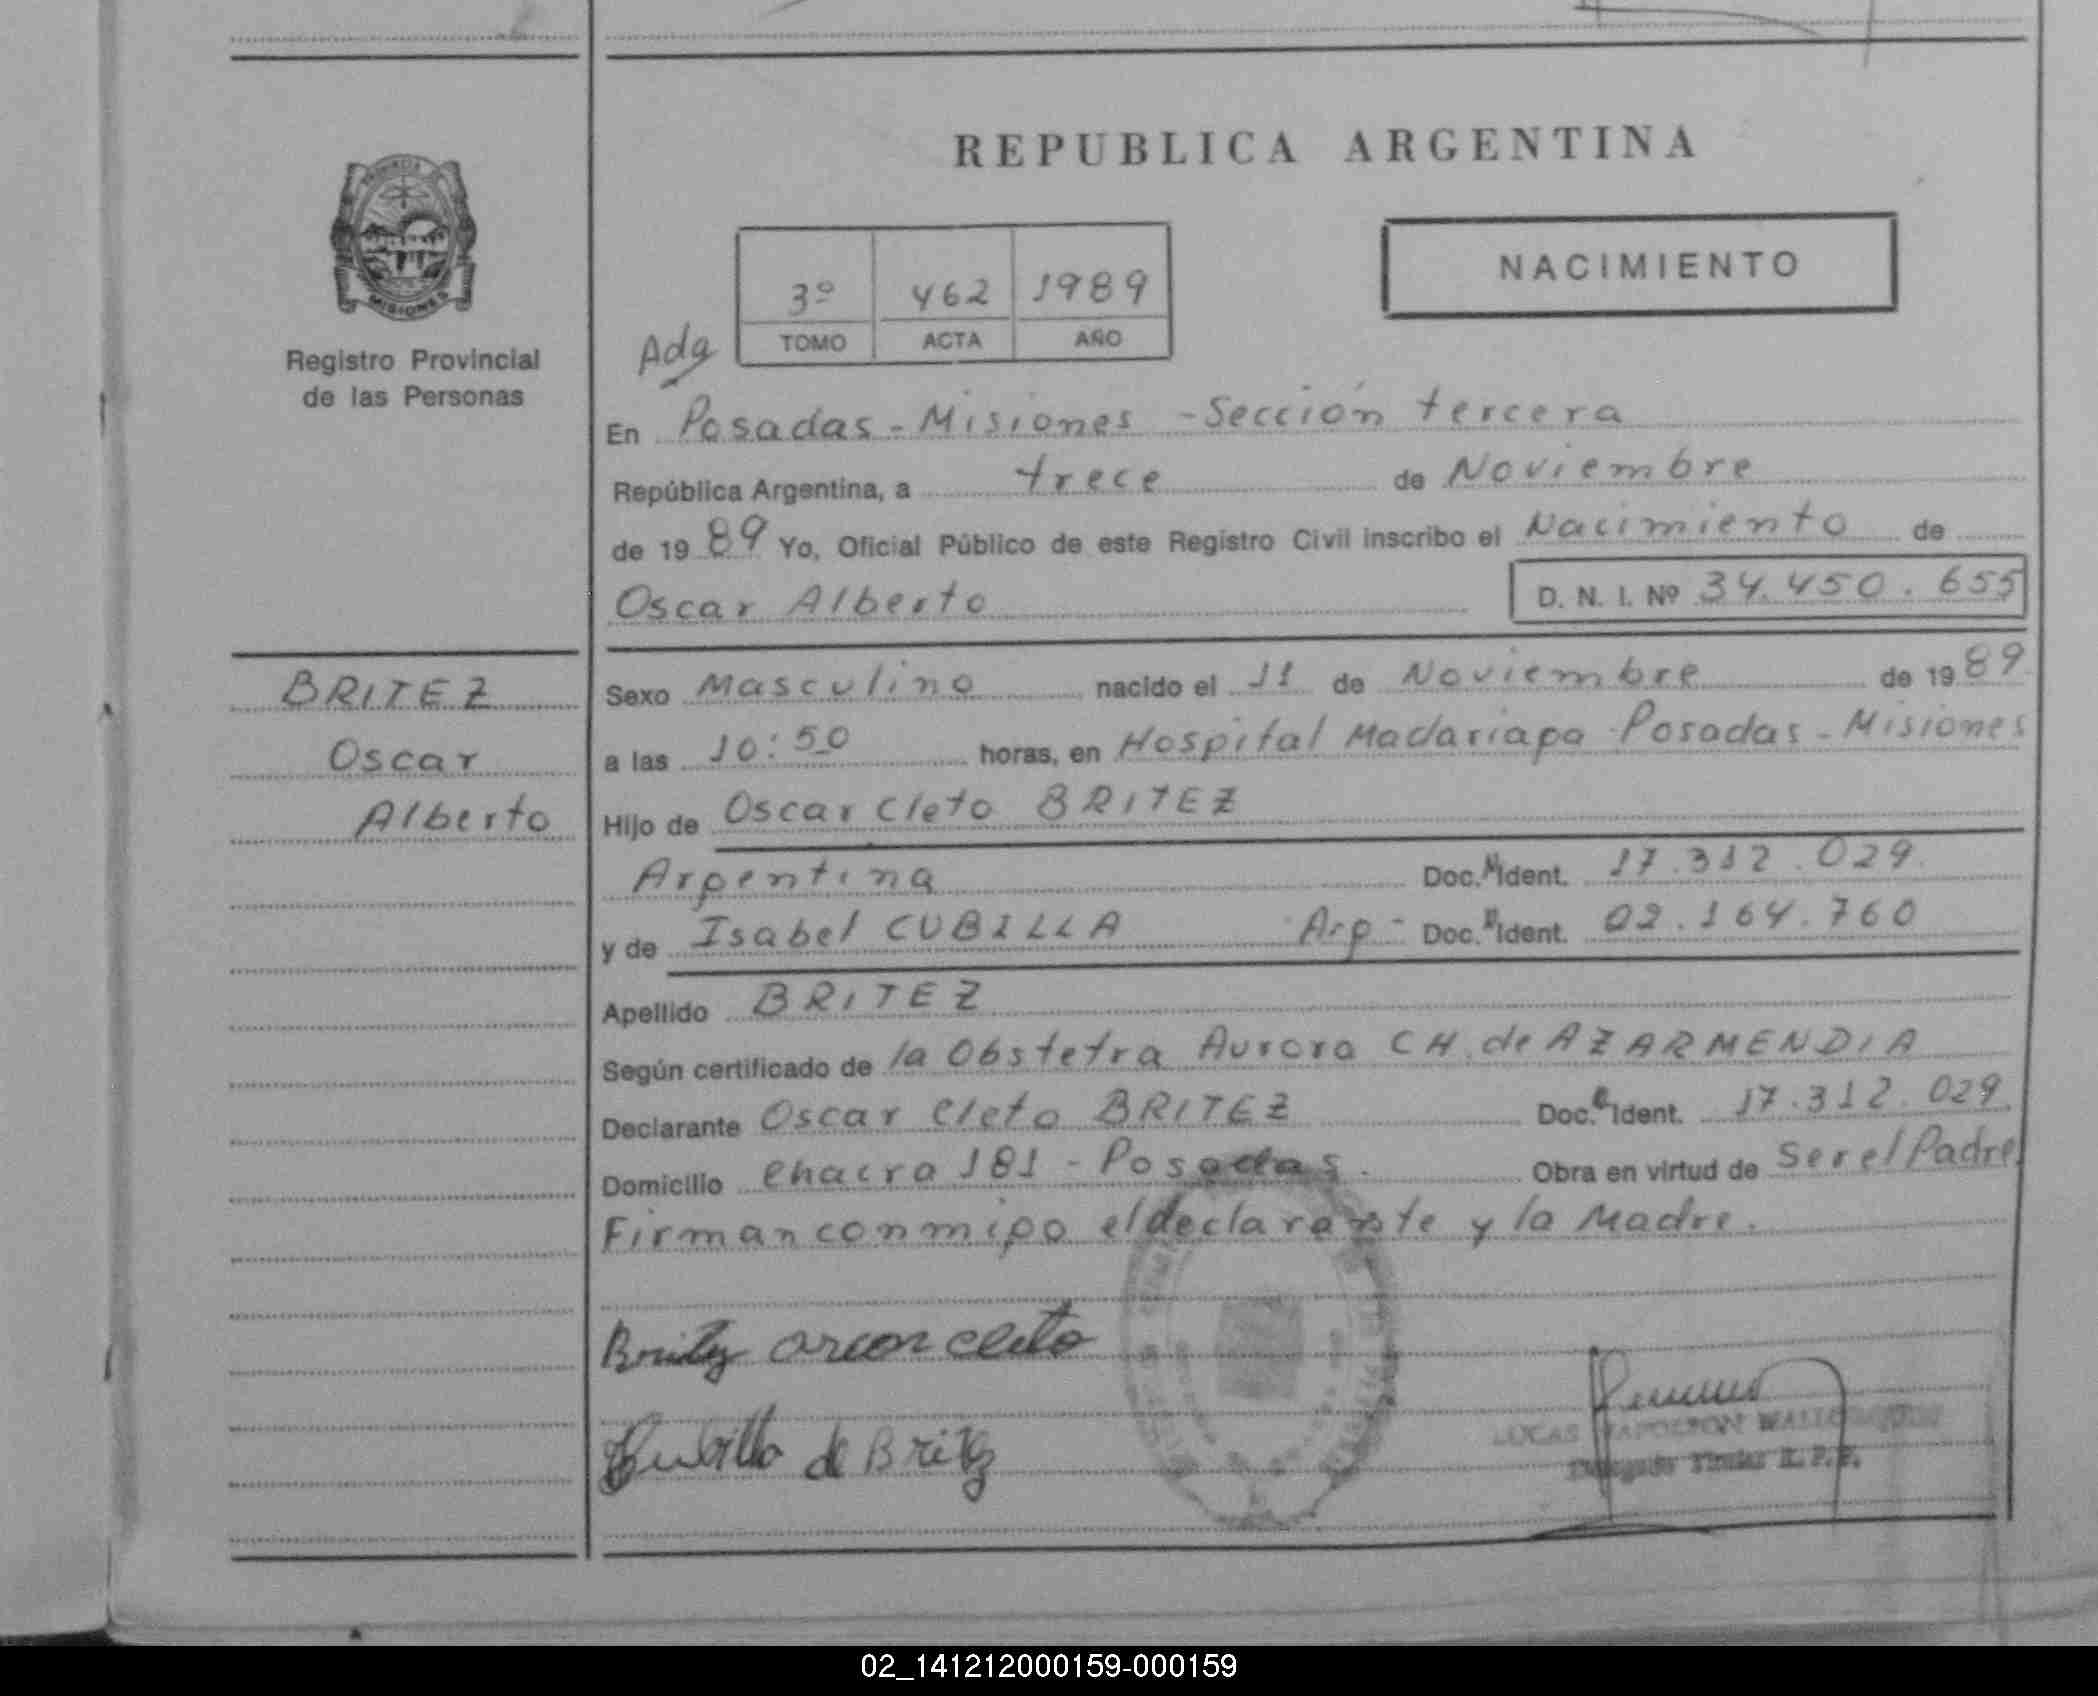 REPUBLICA ARGENTINA
NACIMIENTO
3º 462 1989
TOMO ACTA AÑO
Adg
Registro Provincial
de las Personas
En Posadas - Misiones - Sección tercera
República Argentina, a trece de Noviembre
de 1989 Yo, Oficial Público de este Registro Civil inscribo el Nacimiento de
Oscar Alberto D. N. I. Nº 34.450.655
BRITEZ
Oscar
Alberto
Sexo Masculino nacido el 11 de Noviembre de 1989
a las 10:50 horas, en Hospital Madariaga Posadas - Misiones
Hijo de Oscar Cleto BRITEZ
Argentina Doc. Ident. 17.312.029
y de Isabel CUBILLA Arg - Doc. Ident. 02.164.760
Apellido BRITEZ
Según certificado de la Obstetra Aurora CH. de AZARMENDIA
Declarante Oscar Cleto BRITEZ Doc. Ident. 17.312.029
Domicilio Chacra 181 - Posadas. Obra en virtud de Ser el Padre
Firman conmigo el declarante y la Madre.
Britez Oscar Cleto
Cubilla de Britez
LUCAS NAPOLEON
Delegado Titular R.P.P.
02_141212000159-000159